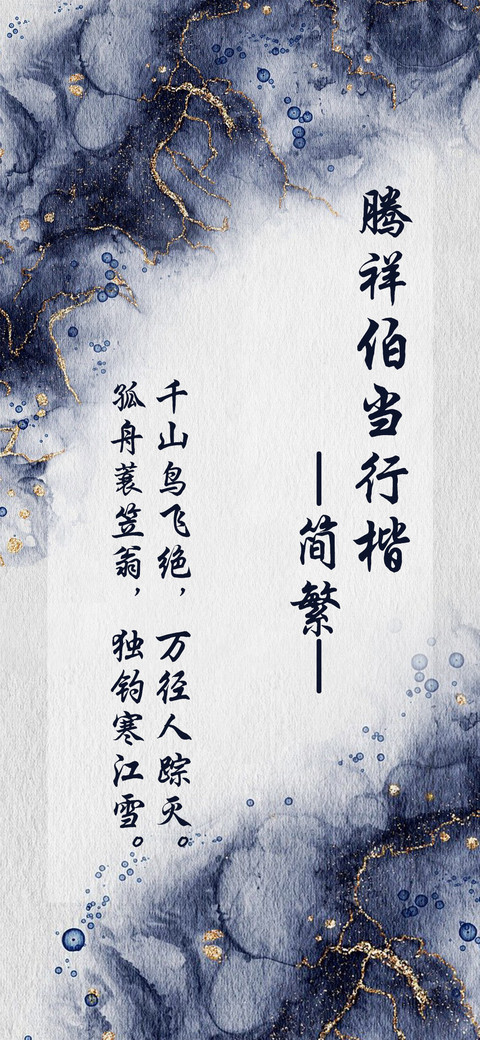 腾祥伯当行楷
—简繁—
千山鸟飞绝，万径人踪灭。
孤舟蓑笠翁，独钓寒江雪。